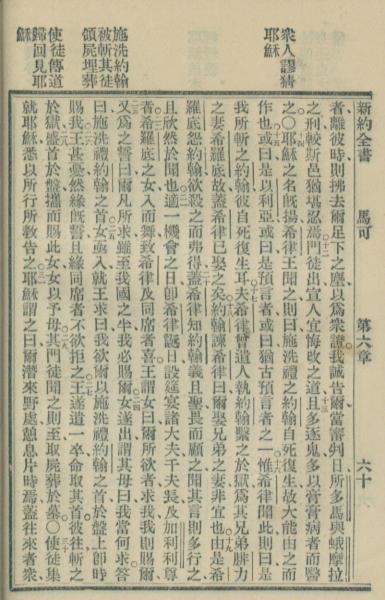 衆人謬猜
耶穌
施洗約翰
被斬其徒
領屍埋葬
使徒傳道
歸回見耶
穌
新約全書 馬可 第六章 六十
者離彼時則拂去爾足下之塵以爲衆證我誠告爾當審判日所多馬與蛾摩拉
之刑較斯邑猶堪忍焉門徒出宣人宜悔改之道且多逐鬼多以膏膏病者而醫
之〇耶穌之名旣揚希律王聞之則曰施洗之約翰自死復生故大能由之而
作也或曰是以利亞或曰是預言者或曰猶古預言者之一惟希律聞此則曰是
我所斬之約翰彼自死復生耳夫希律曾遣人執約翰繫之於獄爲其兄弟腓力
之妻希羅底故蓋希律已娶之矣約翰諫希律曰爾娶兄弟之妻非宜也由是希
羅底怨約翰欲殺之而弗得蓋希律知約翰義且聖畏而顧之聞其言則多行之
且欣然於聞也適一機會之日卽希律誕日設筵宴諸大夫千夫長及加利利尊
者希羅底之女入而舞致希律及同席者喜王謂女曰爾所欲者求我我則賜爾
又爲之誓曰爾凡所求雖至我國之半我必賜爾女遂出謂其母曰我當何求答
曰施洗禮約翰之首女亟入就王求曰我欲爾以施洗禮約翰之首於盤上卽時
賜我王甚憂然緣旣誓且緣同席者不欲拒之王遂遣一卒命取其首彼往斬之
於獄盛首於盤攜而賜此女女以予母其門徒聞之則至取屍葬於墓〇使徒集
就耶穌悉以所行所敎告之耶穌謂之曰爾潛來野處憩息片時焉蓋往來者衆